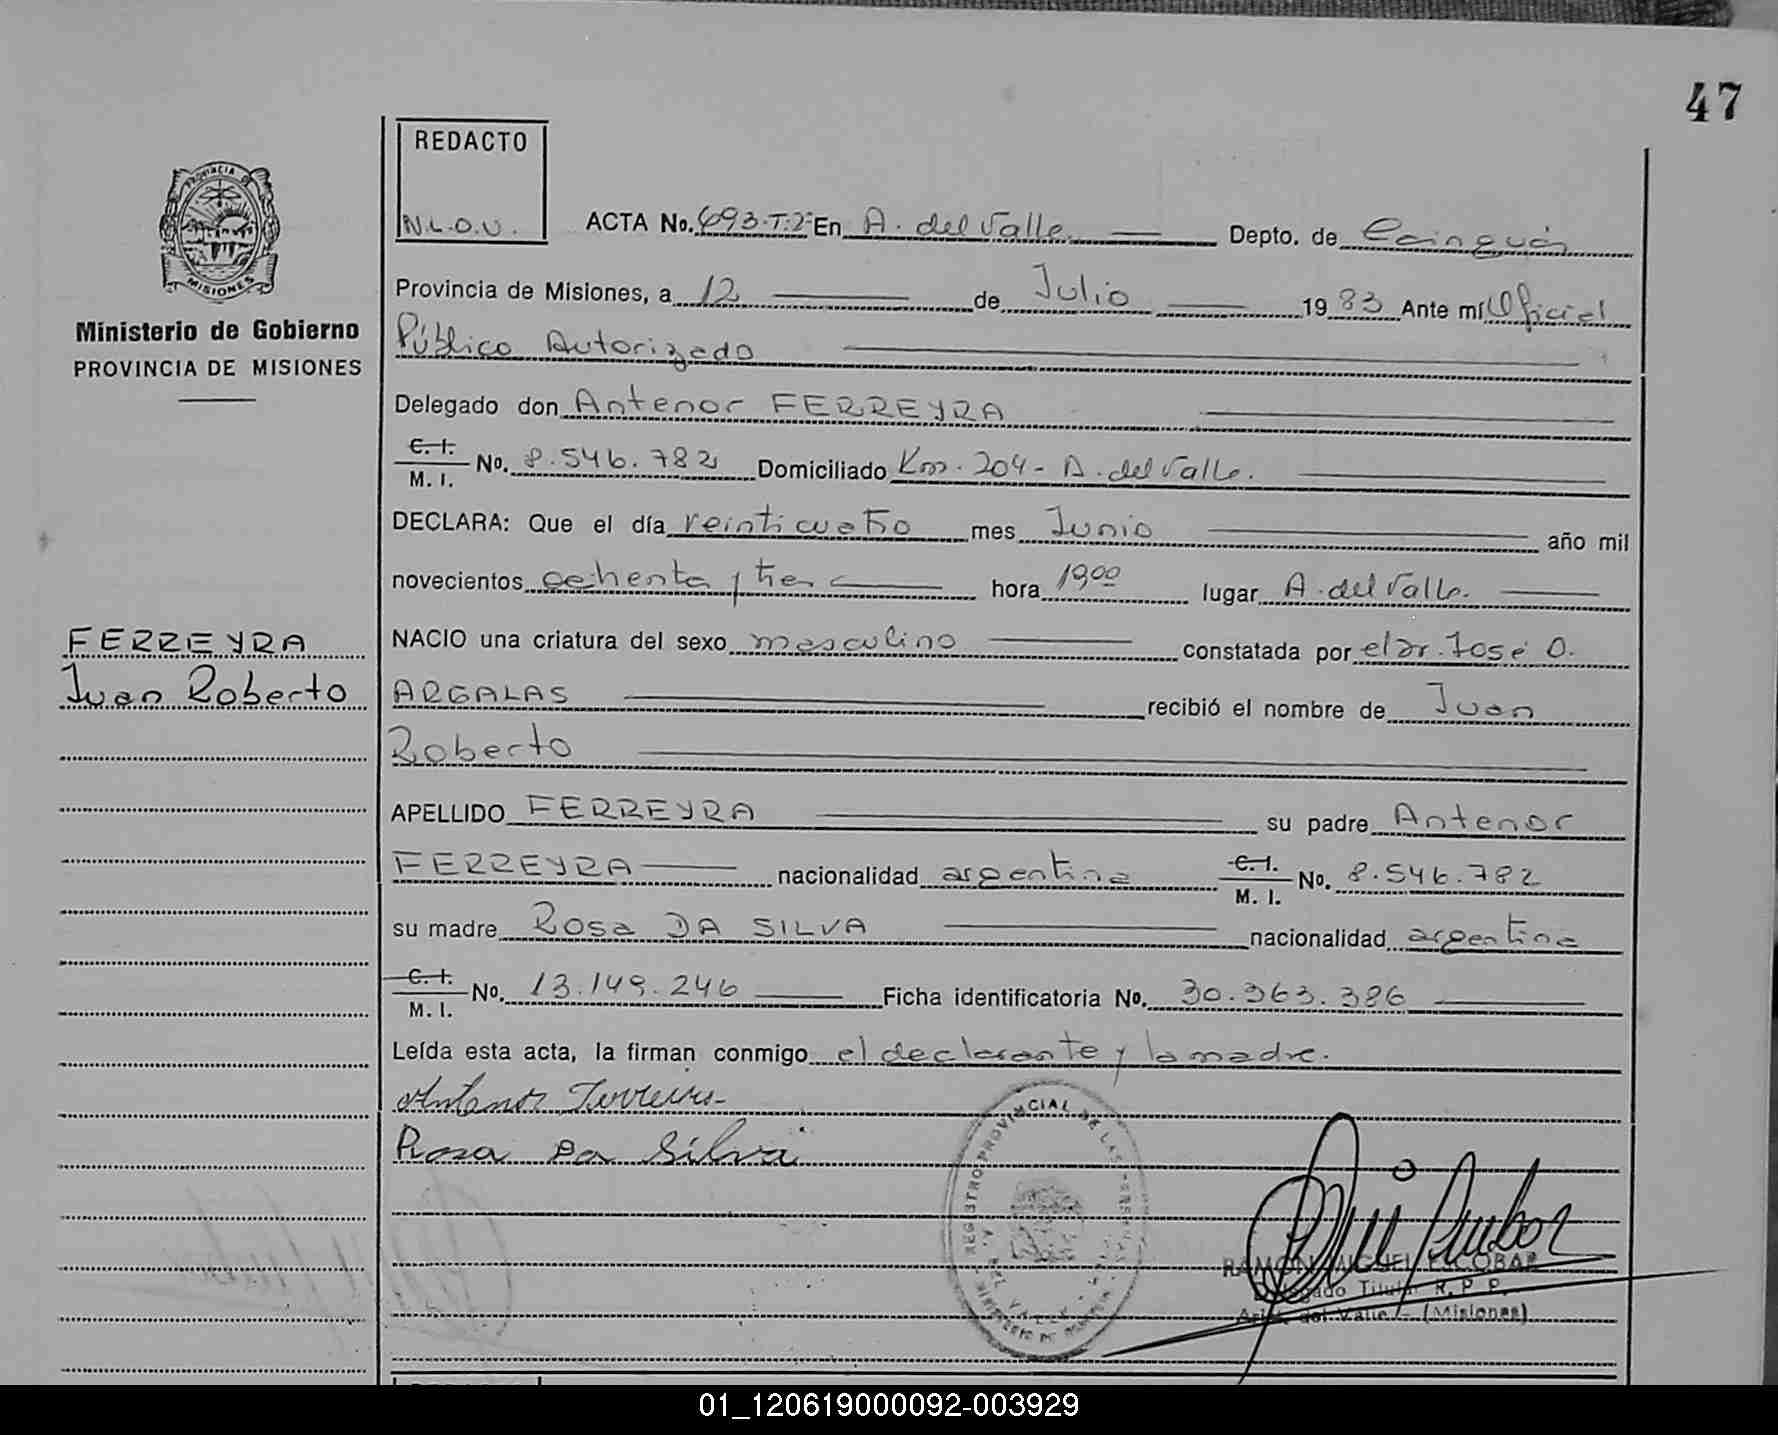 47
REDACTO
N.L.O.U.
ACTA No. 693-T:2º En A. del Valle Depto. de Cainguás
Provincia de Misiones, a 12 de Julio 1983 Ante mí Oficial
Ministerio de Gobierno
PROVINCIA DE MISIONES
Público Autorizado
Delegado don Antenor FERREYRA
C. I. M. I. No. 8.546.782 Domiciliado Km. 204 - A. del Valle.
DECLARA: Que el día veinticuatro mes Junio año mil
novecientos ochenta y tres hora 19⁰⁰ lugar A. del Valle.
FERREYRA
Juan Roberto
NACIO una criatura del sexo masculino constatada por el Dr. José O.
ARGALAS recibió el nombre de Juan
Roberto
APELLIDO FERREYRA su padre Antenor
FERREYRA nacionalidad argentina C. I. M. I. No. 8.546.782
su madre Rosa DA SILVA nacionalidad argentina
C. I. M. I. No. 13.149.246 Ficha identificatoria No. 30.363.386
Leída esta acta, la firman conmigo el declarante y la madre.
Antenor Ferreira
Rosa Da Silva
REGISTRO PROVINCIAL DE LAS PERSONAS
A. DEL VALLE
RAMON MIGUEL ESCOBAR
Delegado Titular R. P. P.
Aris. del Valle - (Misiones)
01_120619000092-003929